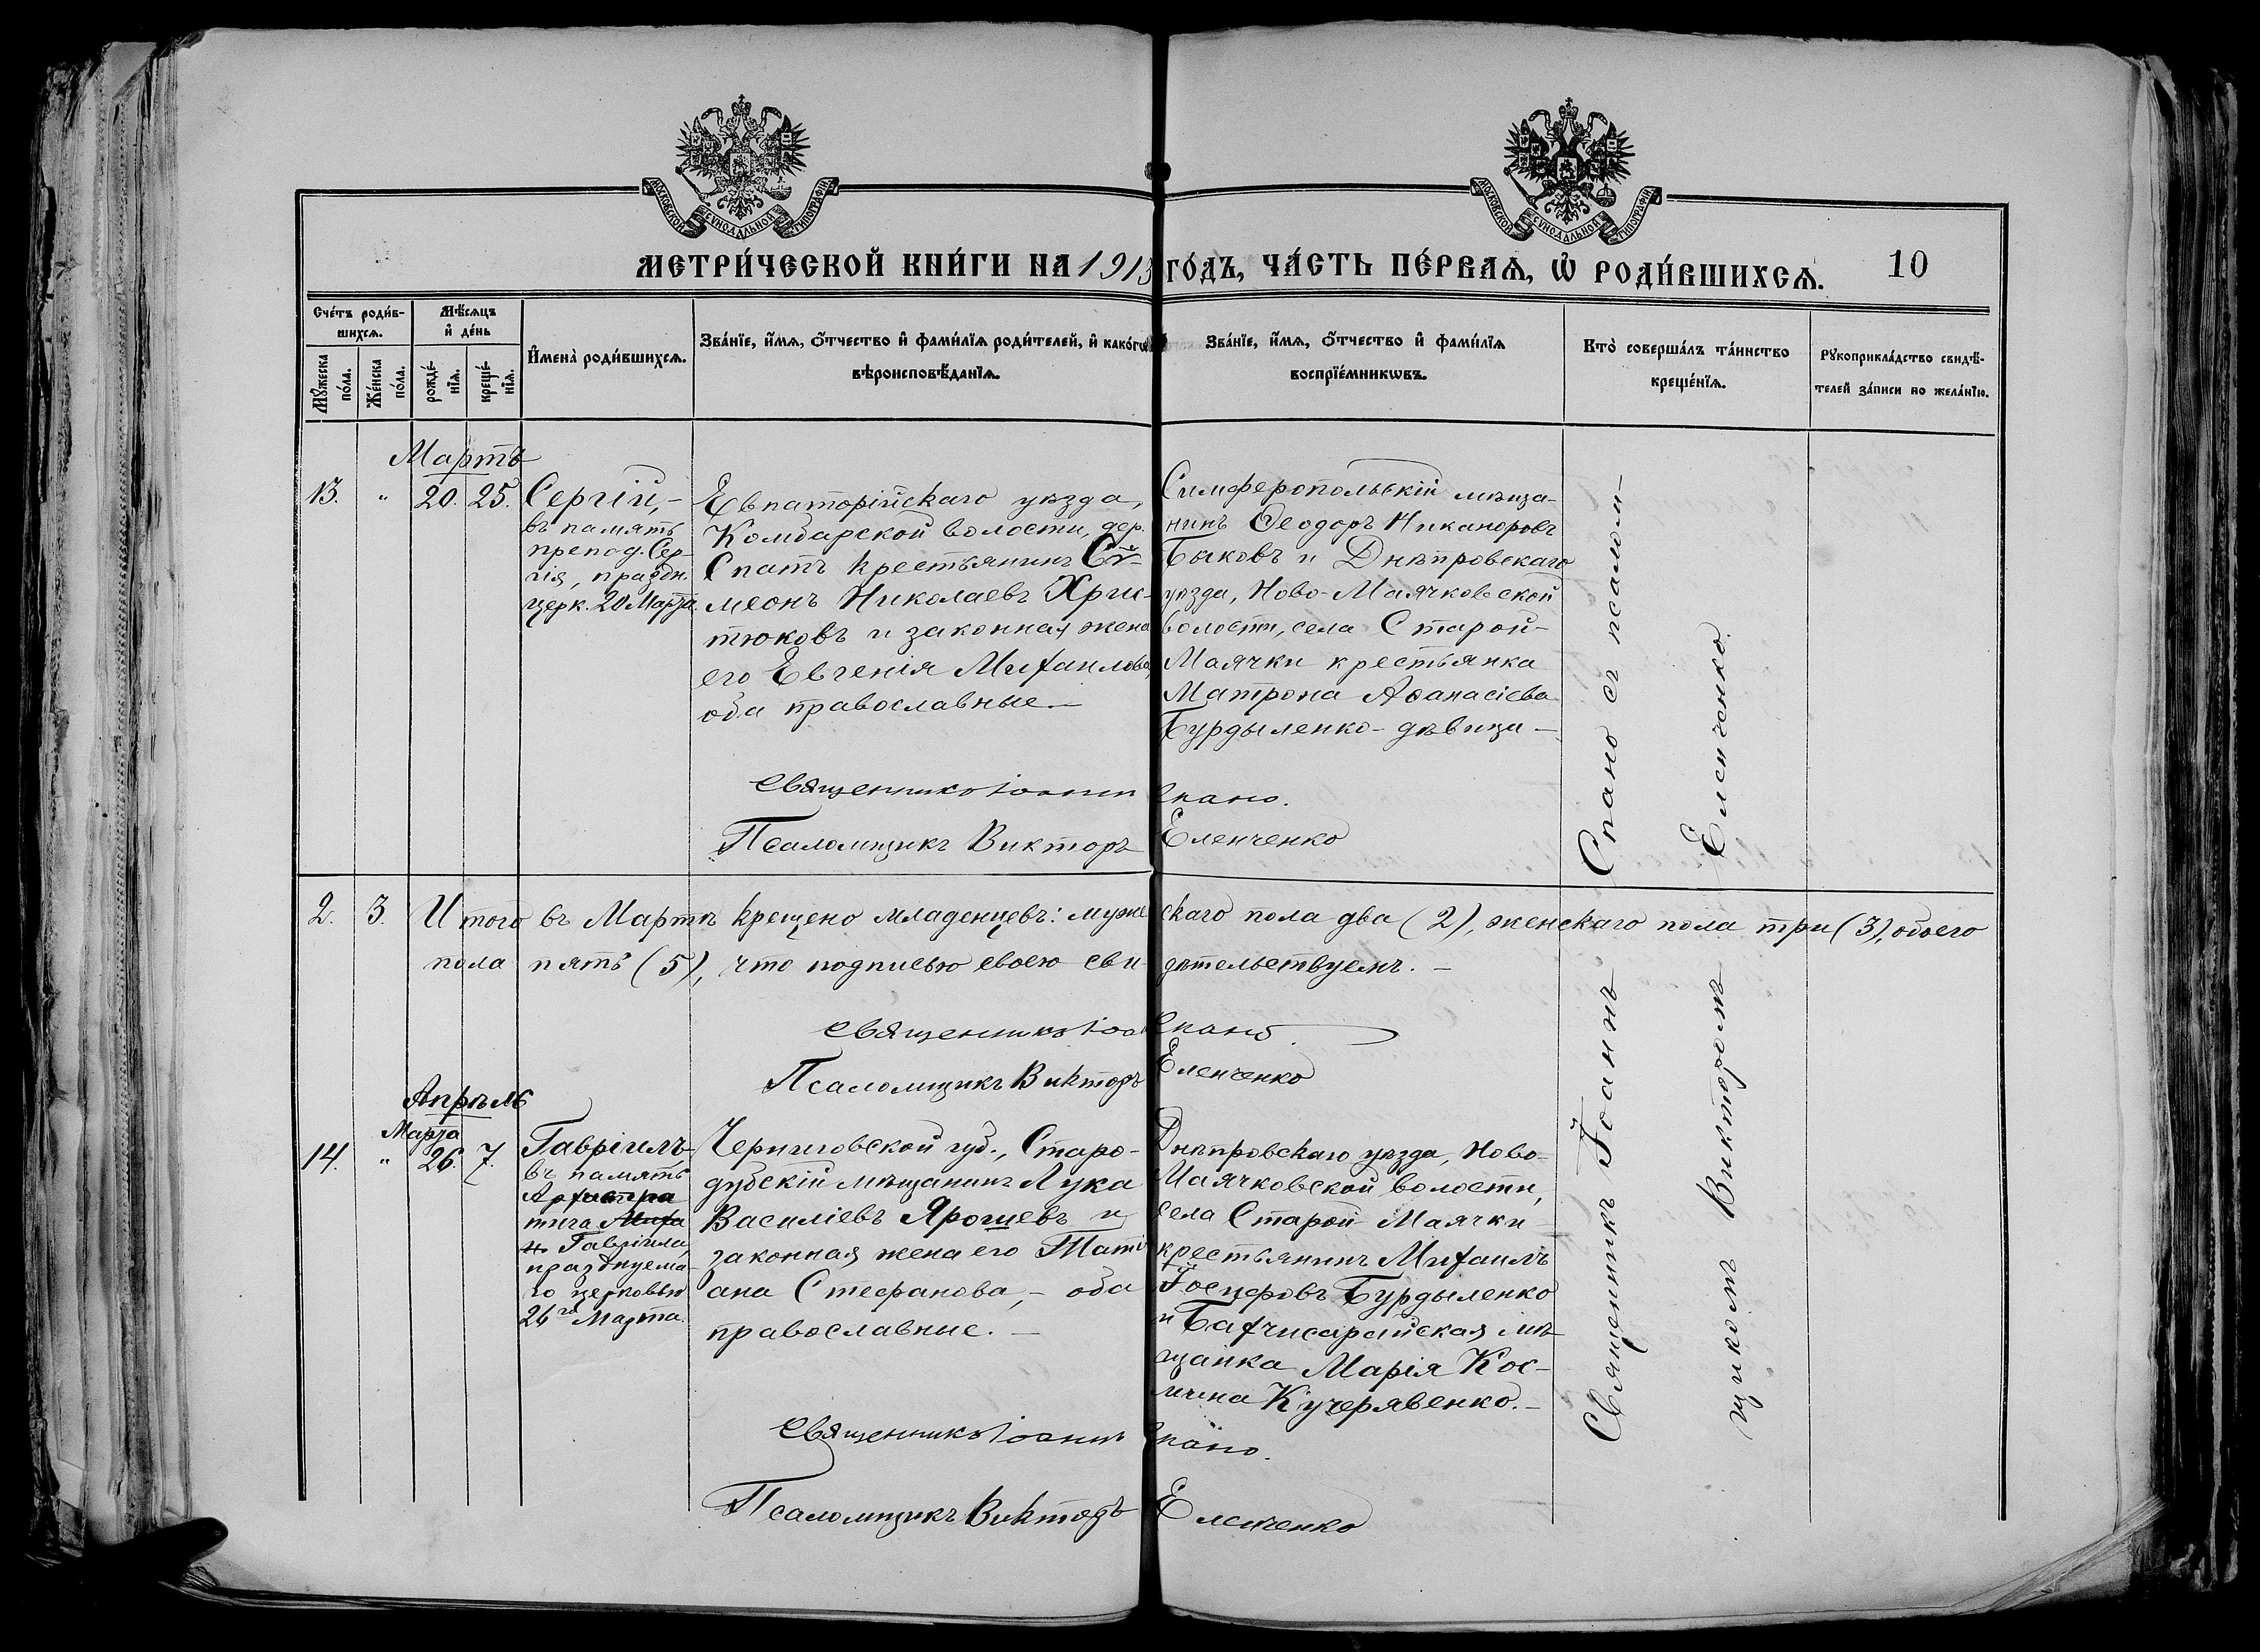 МОСКОВСКОЙ СѴНОДАЛЬНОЙ ТИПОГРАФІИ
МОСКОВСКОЙ СѴНОДАЛЬНОЙ ТИПОГРАФІИ
МЕТРИ́ЧЕСКОЙ КНИ́ГИ НА 1913 ГО́ДЪ, ЧА́СТЬ ПЕ́РВАѦ, Ѡ҆ РОДИ́ВШИХСѦ. 10
Сче́тъ роди́в-
шихсѧ.
Мꙋ́жеска
по́ла.
Же́нска
по́ла.
Мѣ́сѧцъ
и҆ де́нь
рожде́-
нїѧ.
креще́-
нїѧ.
И҆мена̀ роди́вшихсѧ.
Зва́нїе, и҆́мѧ, ѻ҆́тчество и҆ фами́лїѧ роди́телей, и҆ како́гѡ
вѣроисповѣ́данїѧ.
Зва́нїе, и҆́мѧ, ѻ҆́тчество и҆ фами́лїѧ
воспрїе́мникѡвъ.
Кто̀ соверша́лъ та́инство
креще́нїѧ.
Рꙋкоприкла́дство свидѣ́-
телей за́писи по жела́нїю.
Мартъ
13. " 20. 25.
Сергій, -
въ память
препод. Сер-
гія, праздн.
церк. 20 Марта
Евпаторійскаго уѣзда,
Комбарской волости, дер.
Спатъ крестьянинъ Сѵ-
меонъ Николаевъ Хрис-
тюковъ и законная жена
его Евгенія Михаилова,
оба православные. -
Симферопольскій мѣща-
нинъ Ѳеодоръ Никаноровъ
Быковъ и Днѣпровскаго
уѣзда, Ново-Маячковской
волости, села Старой-
Маячки крестьянка
Матрона Аѳанасіева
Бурдыленко - дѣвица -
Священникъ Іоаннъ Спано.
Псаломщикъ Викторъ Еленченко
2. 3. Итого въ Мартѣ крещено младенцевъ: мужескаго пола два (2), женскаго пола три (3), обоего
пола пять (5), что подписью своею свидѣтельствуемъ. -
Священникъ Іоа Спано
Псаломщикъ Викторъ Еленченко
Апрѣль
Марта
14. " 26. 7.
Гавріилъ-
въ память
Архистра
тига Миха
и Гавріила,
празднуема-
го церковью
26го Марта.
Черниговской губ., Старо-
дубскій мѣщанинъ Лука
Василіевъ Ярошевъ и
законная жена его Таті
ана Стефанова, - оба
православные. -
Днѣпровскаго уѣзда, Ново-
Маячковской волости,
села Старой Маячки
крестьянинъ Михаилъ
Іосифовъ Бурдыленко
и Бахчисарайская мѣ-
щанка Марія Кос-
мина Кучерявенко. -
Священникъ Іоаннъ Спано.
Псаломщикъ Викторъ Еленченко
Священникъ Іоаннъ Спано съ псалом-
щикомъ Викторомъ Еленченко.